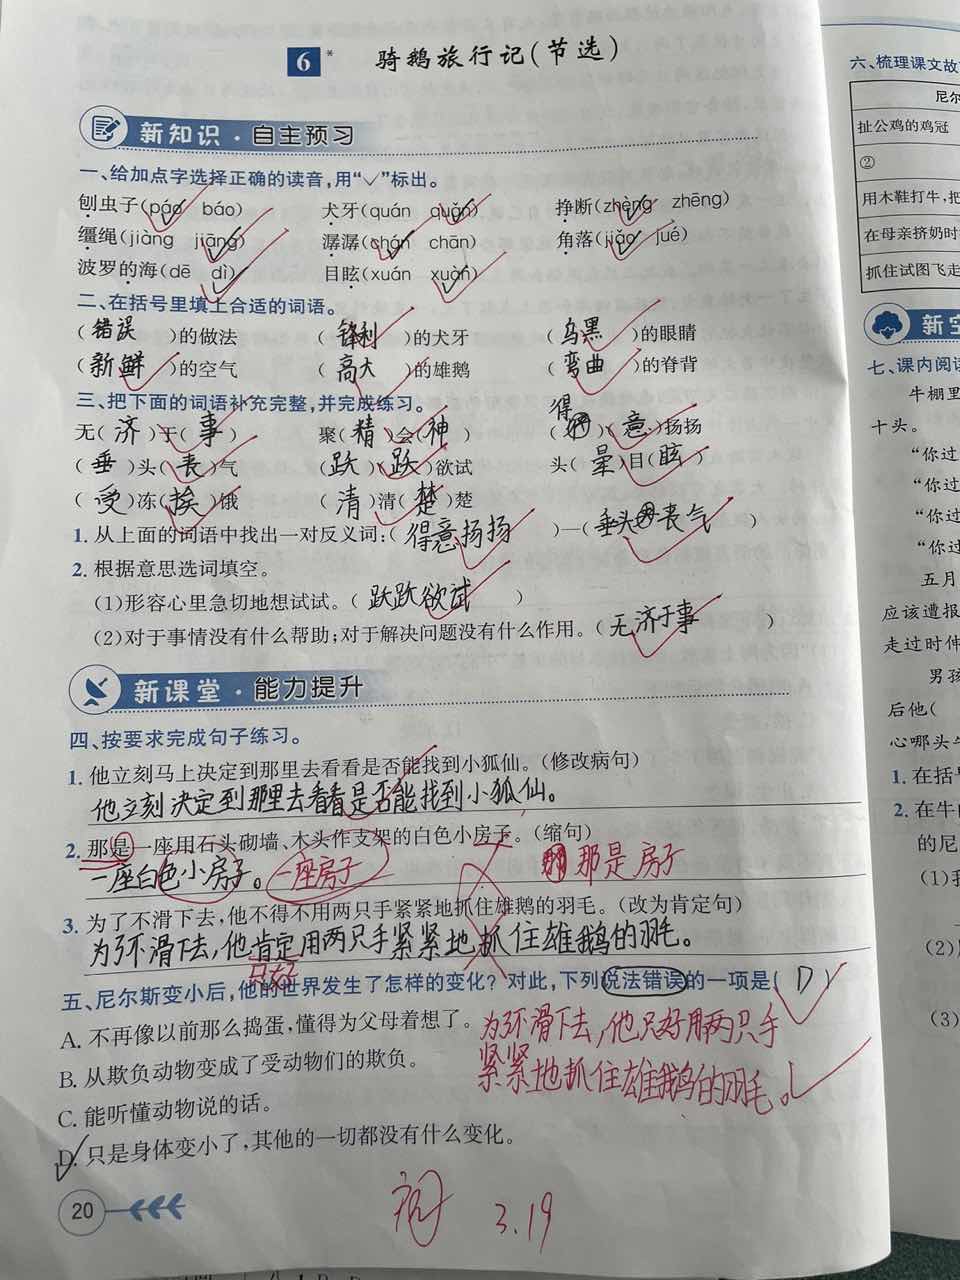 6* 骑鹅旅行记(节选)
新知识·自主预习
一、给加点字选择正确的读音,用“✓”标出。
刨虫子(páo báo) 犬牙(quán quǎn) 挣断(zhèng zhēng)
缰绳(jiàng jiāng) 潺潺(chán chān) 角落(jiǎo jué)
波罗的海(dē dì) 目眩(xuán xuàn)
二、在括号里填上合适的词语。
(错误)的做法 (锋利)的犬牙 (乌黑)的眼睛
(新鲜)的空气 (高大)的雄鹅 (弯曲)的脊背
三、把下面的词语补充完整,并完成练习。
无(济)于(事) 聚(精)会(神) (得)(意)扬扬
(垂)头(丧)气 (跃)(跃)欲试 头(晕)目(眩)
(受)冻(挨)饿 (清)清(楚)楚
1. 从上面的词语中找出一对反义词:(得意扬扬)—(垂头丧气)
2. 根据意思选词填空。
(1)形容心里急切地想试试。(跃跃欲试)
(2)对于事情没有什么帮助;对于解决问题没有什么作用。(无济于事)
新课堂·能力提升
四、按要求完成句子练习。
1. 他立刻马上决定到那里去看看是否能找到小狐仙。(修改病句)
他立刻决定到那里去看看是否能找到小狐仙。
2. 那是一座用石头砌墙、木头作支架的白色小房子。(缩句)
一座白色小房子。 一座房子 那是房子
3. 为了不滑下去,他不得不用两只手紧紧地抓住雄鹅的羽毛。(改为肯定句)
为不滑下去,他肯定用两只手紧紧地抓住雄鹅的羽毛。
只好
五、尼尔斯变小后,他的世界发生了怎样的变化?对此,下列说法错误的一项是(D)
A. 不再像以前那么捣蛋,懂得为父母着想了。
为不滑下去,他只好用两只手
紧紧地抓住雄鹅的羽毛。
B. 从欺负动物变成了受动物们的欺负。
C. 能听懂动物说的话。
D. 只是身体变小了,其他的一切都没有什么变化。
20
阅 3.19
六、梳理课文故
尼尔
扯公鸡的鸡冠
②
用木鞋打牛,把
在母亲挤奶时
抓住试图飞走
新空
七、课内阅读
牛棚里
十头。
“你过
“你过
“你过
“你过
五月
应该遭报
走过时伸
男孩
后他(
心哪头牛
1. 在括号
2. 在牛
的尼
(1)我
(2)
(3)